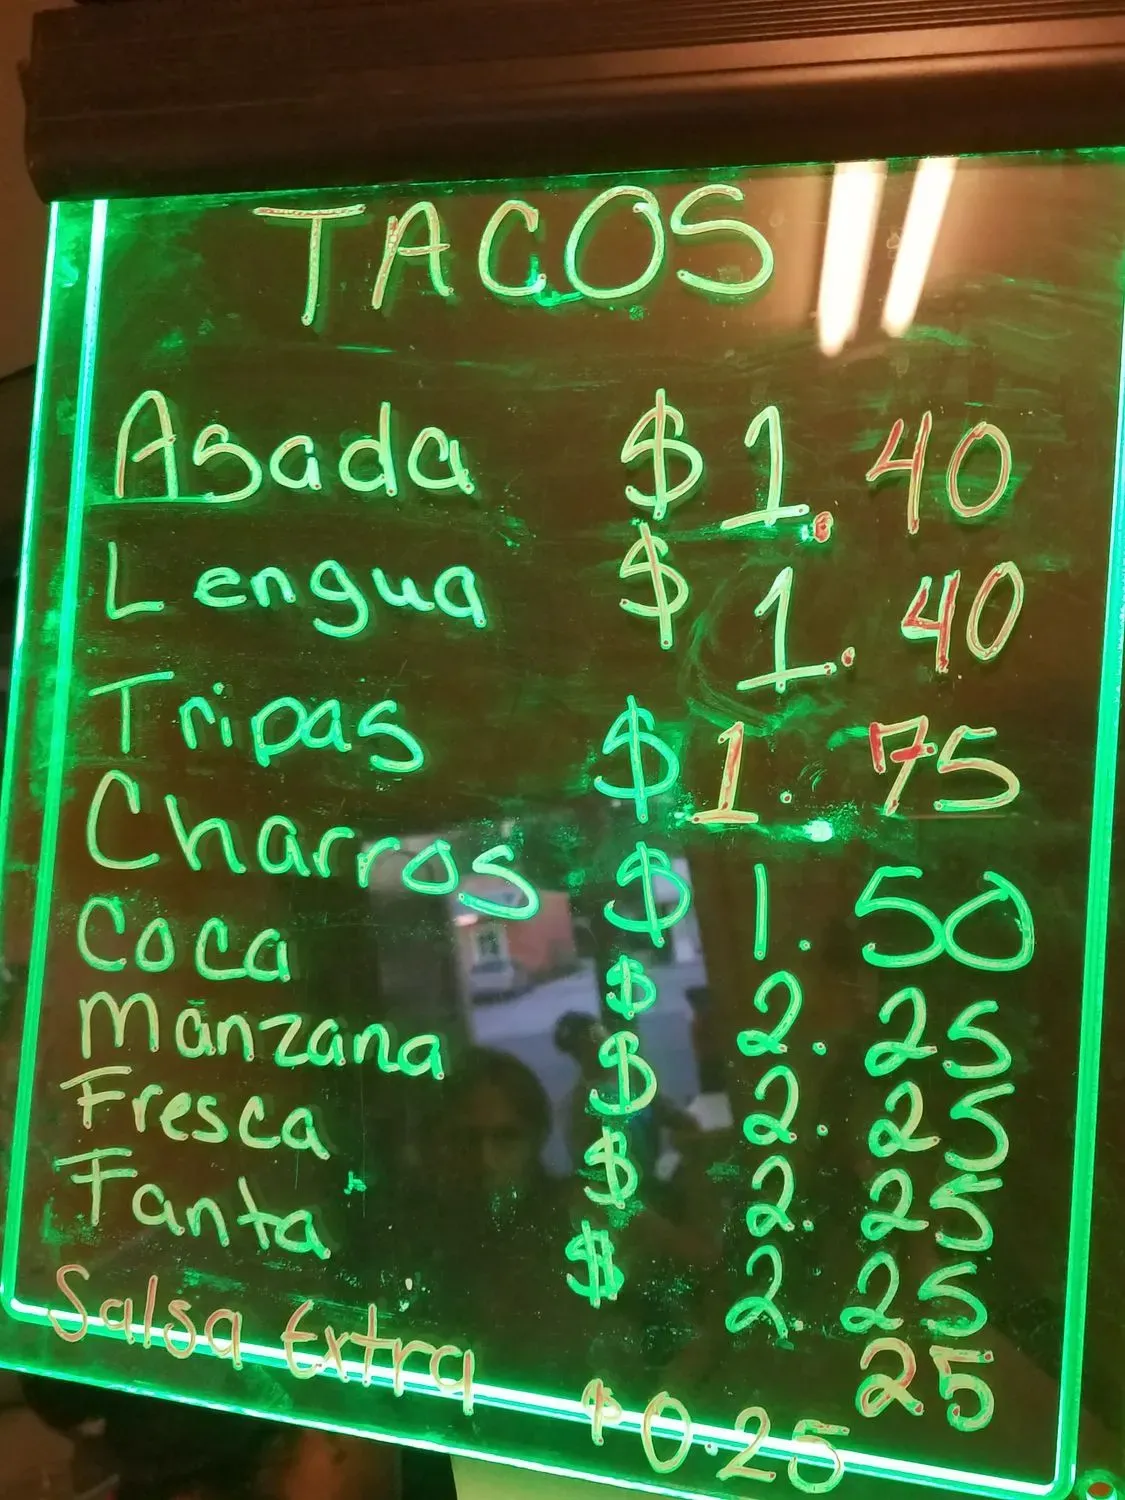 TACOS
Asada $1.40
Lengua $1.40
Tripas $1.75
Charros $1.50
Coca $2.25
Manzana $2.25
Fresca $2.25
Fanta $2.25
25
Salsa Extra $0.25